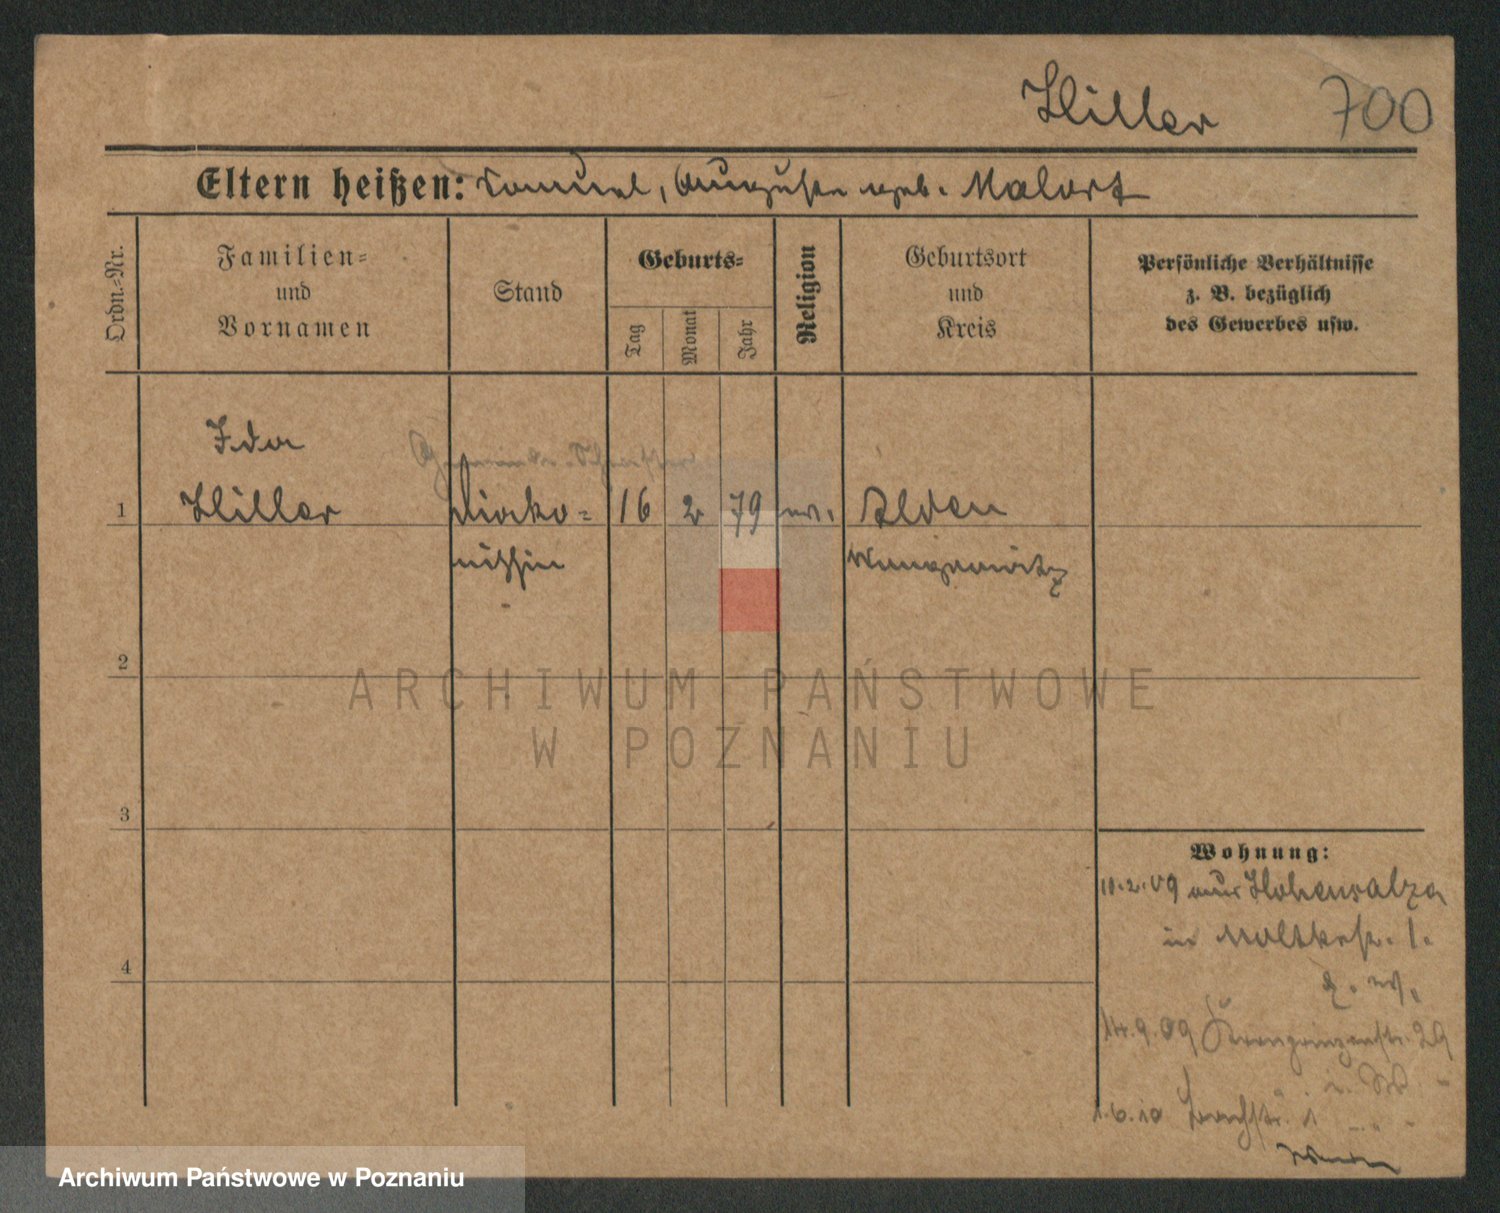 Hiller 700
Eltern heißen: Samuel, Auguste geb. Malort
Ordn.-Nr.
Familien-
und
Vornamen
Stand
Geburts-
Tag
Monat
Jahr
Religion
Geburtsort
und
Kreis
Persönliche Verhältnisse
z. B. bezüglich
des Gewerbes usw.
Ida
Gemeinde-Schwester
1 Hiller Diako- 16 2 79 ev. Alden
nissin Wungerowitz
2
ARCHIWUM PAŃSTWOWE
W POZNANIU
3
Wohnung:
11.2.09 aus Hohensalza
in Moltkestr. 1.
14.9.09 Kronprinzenstr. 29
1.6.10
4
Archiwum Państwowe w Poznaniu